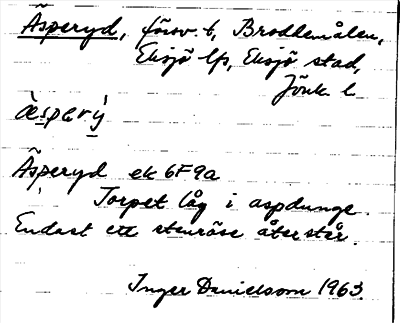 Äsperyd, försv. t, Broddemålen,
Eksjö lfs, Eksjö stad,
Jönk. l.
æ̀spery�, 
Äsperyd ek 6F9a
Torpet låg i aspdunge.
Endast ett stenröse återstår.
Inger Danielsson 1963.